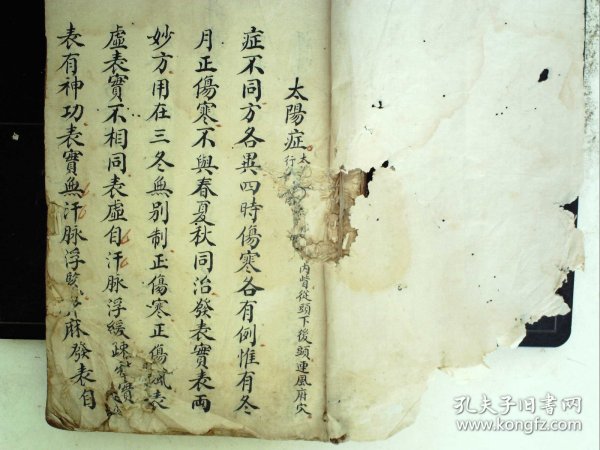 太陽症
太
行
內督從頭下後頭連風府穴
症不同方各異四時傷寒各有例惟有冬
月正傷寒不與春夏秋同治發表實表兩
妙方用在三冬無別制正傷寒正傷風表
虛表實不相同表虛自汗脉浮緩疎實
表有神功表實無汗脉浮緊麻發表自
孔夫子旧书网
www.kongfz.com